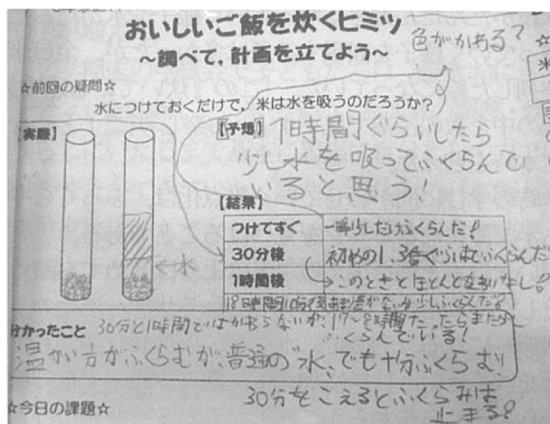 おいしいご飯を炊くヒミツ
～調べて,計画を立てよう～
色がかわる?
☆前回の疑問☆
水につけておくだけで, 米は水を吸うのだろうか?
【実験】
【予想】 1時間ぐらいしたら
少し水を吸ってふくらんで
いると思う!
水
【結果】
つけてすぐ 一瞬少しだけふくらんだ!
30分後 初めの1.3倍ぐらいまでふくらんだ
1時間後 このときとほとんど変わりなし!
分かったこと 30分と1時間ではかわらないが、17~8時間たったらまた少し
ふくらんでいる!
温かい方がふくらむが、普通の水でも十分ふくらむ!
30分をこえるとふくらみは
止まる?
☆今日の課題☆